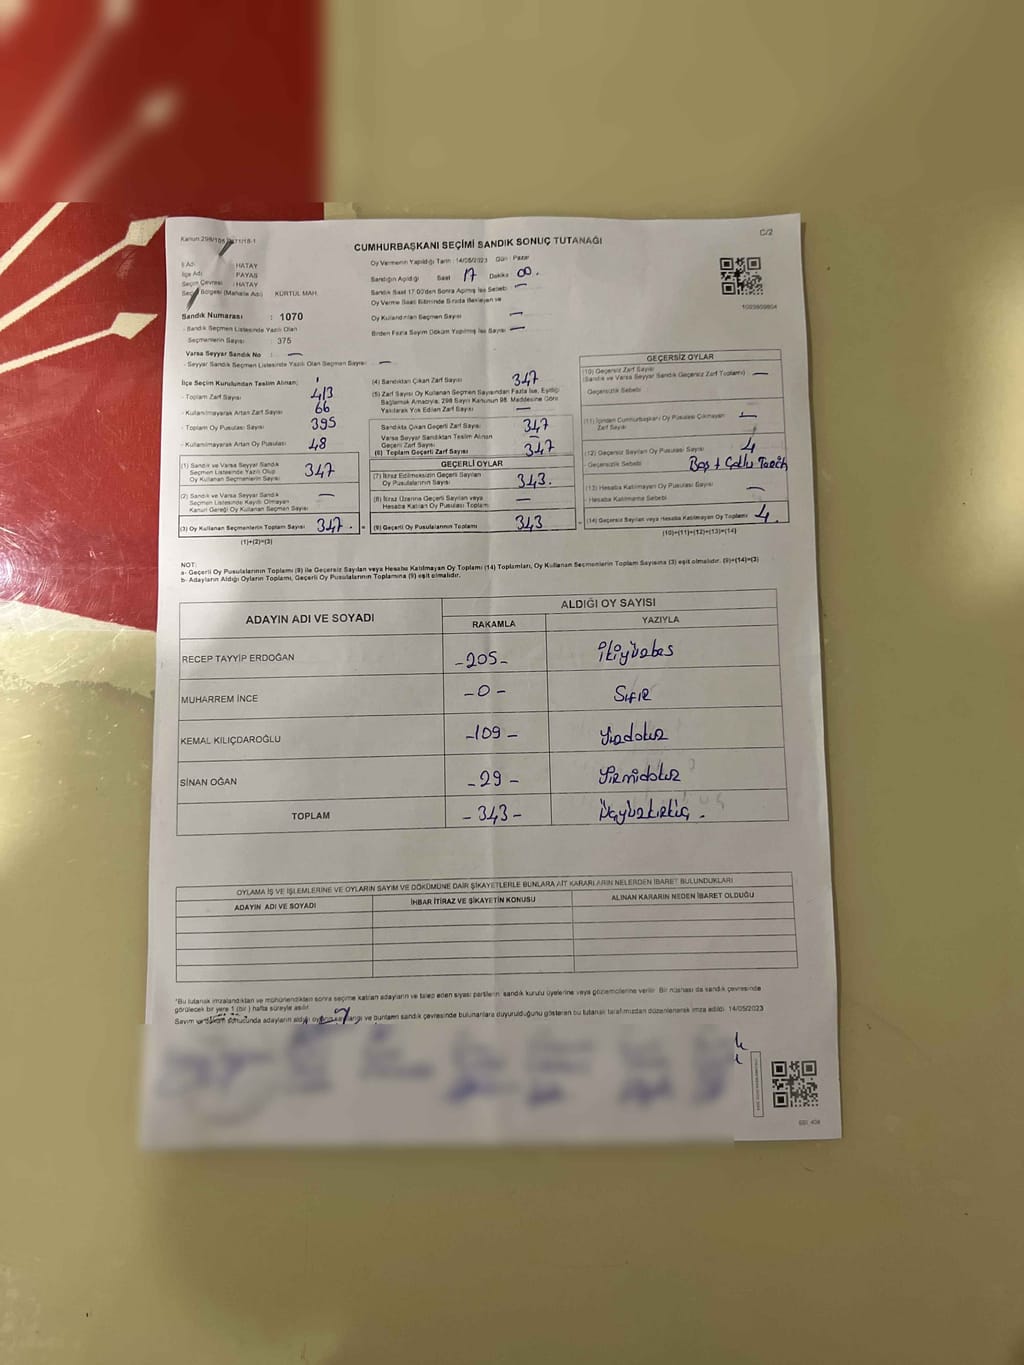 C/2
CUMHURBAŞKANI SEÇİMİ SANDIK SONUÇ TUTANAĞI
İl Adı : HATAY
İlçe Adı : PAYAS
Seçim Çevresi : HATAY
Seçim Bölgesi (Mahalle Adı) KÜRTÜL MAH.
Sandık Numarası : 1070
- Sandık Seçmen Listesinde Yazılı Olan
Seçmenlerin Sayısı : 375
Varsa Seyyar Sandık No : —
- Seyyar Sandık Seçmen Listesinde Yazılı Olan Seçmen Sayısı : —
Oy Vermenin Yapıldığı Tarih : 14/05/2023 Gün : Pazar
Sandığın Açıldığı Saat 17 Dakika 00.
Sandık Saat 17:00'den Sonra Açılmış İse Sebebi —
Oy Verme Saati Bitiminde Sırada Bekleyen ve
Oy Kullandırılan Seçmen Sayısı —
Birden Fazla Sayım Döküm Yapılmış İse Sayısı —
İlçe Seçim Kurulundan Teslim Alınan;
- Toplam Zarf Sayısı 413
- Kullanılmayarak Artan Zarf Sayısı 66
- Toplam Oy Pusulası Sayısı 395
- Kullanılmayarak Artan Oy Pusulası 48
(1) Sandık ve Varsa Seyyar Sandık
Seçmen Listesinde Yazılı Olup
Oy Kullanan Seçmenlerin Sayısı 347
(2) Sandık ve Varsa Seyyar Sandık
Seçmen Listesinde Kayıtlı Olmayan
Kanun Gereği Oy Kullanan Seçmen Sayısı —
(3) Oy Kullanan Seçmenlerin Toplam Sayısı 347.
(1)+(2)=(3)
(4) Sandıktan Çıkan Zarf Sayısı 347
(5) Zarf Sayısı Oy Kullanan Seçmen Sayısından Fazla İse, Eşitliği
Bağlamak Amacıyla, 298 Sayılı Kanunun 98. Maddesine Göre
Yakılarak Yok Edilen Zarf Sayısı —
Sandıkta Çıkan Geçerli Zarf Sayısı 347
Varsa Seyyar Sandıktan Teslim Alınan
Geçerli Zarf Sayısı —
(6) Toplam Geçerli Zarf Sayısı 347
GEÇERLİ OYLAR
(7) İtiraz Edilmeksizin Geçerli Sayılan
Oy Pusulalarının Sayısı 343.
(8) İtiraz Üzerine Geçerli Sayılan veya
Hesaba Katılan Oy Pusulası Toplam —
(9) Geçerli Oy Pusulalarının Toplamı 343
GEÇERSİZ OYLAR
(10) Geçersiz Zarf Sayısı
(Sandık ve Varsa Seyyar Sandık Geçersiz Zarf Toplamı) —
Geçersizlik Sebebi
(11) İçinden Cumhurbaşkanı Oy Pusulası Çıkmayan
Zarf Sayısı —
(12) Geçersiz Sayılan Oy Pusulası Sayısı 4
- Geçersizlik Sebebi Boş + Çoklu Tercih
(13) Hesaba Katılmayan Oy Pusulası Sayısı —
- Hesaba Katılmama Sebebi
(14) Geçersiz Sayılan veya Hesaba Katılmayan Oy Toplamı 4.
(10)+(11)+(12)+(13)=(14)
NOT:
a- Geçerli Oy Pusulalarının Toplamı (9) ile Geçersiz Sayılan veya Hesaba Katılmayan Oy Toplamı (14) Toplamları, Oy Kullanan Seçmenlerin Toplam Sayısına (3) eşit olmalıdır. (9)+(14)=(3)
b- Adayların Aldığı Oyların Toplamı, Geçerli Oy Pusulalarının Toplamına (9) eşit olmalıdır.
ADAYIN ADI VE SOYADI
ALDIĞI OY SAYISI
RAKAMLA YAZIYLA
RECEP TAYYİP ERDOĞAN -205- ikiyüzbeş
MUHARREM İNCE -0- Sıfır
KEMAL KILIÇDAROĞLU -109- Yüzdokuz
SİNAN OĞAN -29- Yirmidokuz
TOPLAM -343- Üçyüzkırküç.
OYLAMA İŞ VE İŞLEMLERİNE VE OYLARIN SAYIM VE DÖKÜMÜNE DAİR ŞİKAYETLERLE BUNLARA AİT KARARLARIN NELERDEN İBARET BULUNDUKLARI
ADAYIN ADI VE SOYADI İHBAR İTİRAZ VE ŞİKAYETİN KONUSU ALINAN KARARIN NEDEN İBARET OLDUĞU
*Bu tutanak imzalandıktan ve mühürlendikten sonra seçime katılan adayların ve talep eden siyasi partilerin sandık kurulu üyelerine veya gözlemcilerine verilir. Bir nüshası da sandık çevresinde
görülecek bir yere 1 (bir) hafta süreyle asılır.
Sayım ve döküm sonucunda adayların aldığı oyların ve bunların sandık çevresinde bulunanlara duyurulduğunu gösteren bu tutanak tarafımızdan düzenlenerek imza edildi. 14/05/2023